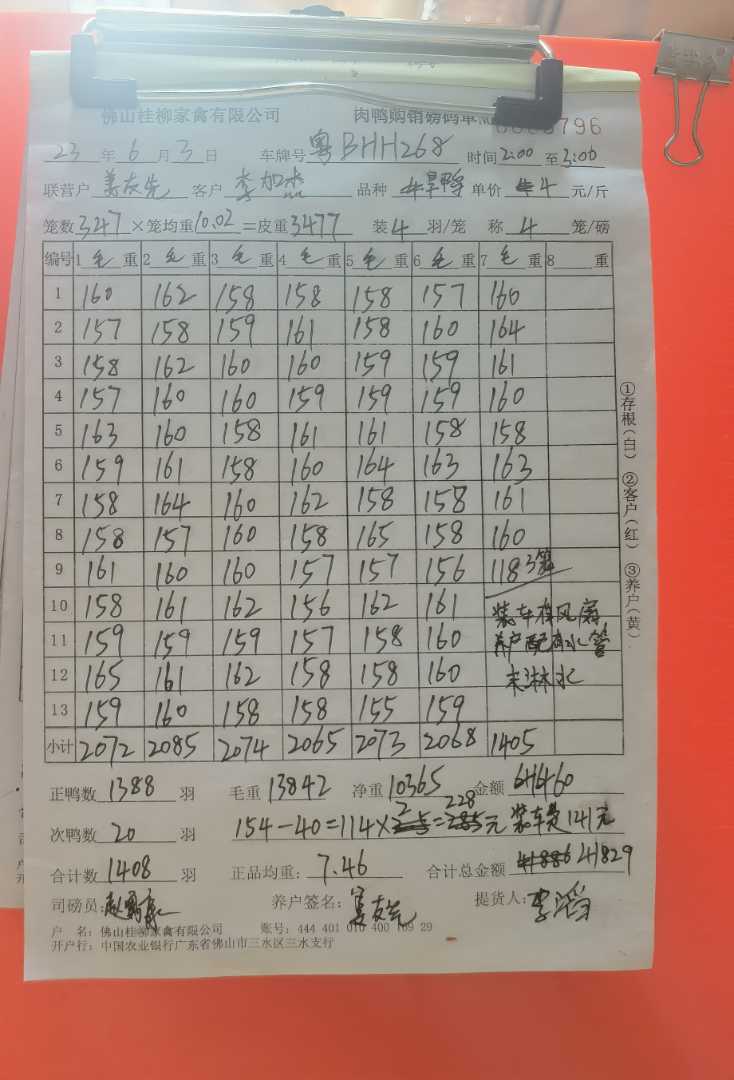 佛山桂柳家禽有限公司 肉鸭购销磅码单 796
23年6月3日 车牌号 粤BHH268 时间2:00至3:00
联营户 姜友先 客户 李加杰 品种 旱鸭 单价 4 元/斤
笼数347×笼均重10.02=皮重3477 装4羽/笼 称4笼/磅
编号 1毛重 2毛重 3毛重 4毛重 5毛重 6毛重 7毛重 8 重
1 160 162 158 158 158 157 160
2 157 158 159 161 158 160 164
3 158 162 160 160 159 159 161
4 157 160 160 159 159 159 160
5 163 160 158 161 161 158 158
6 159 161 158 160 164 163 163
7 158 164 160 162 158 158 161
8 158 157 160 158 165 158 160
9 161 160 160 157 157 156 118 3笼
10 158 161 162 156 162 161 装车有风扇
11 159 159 159 157 158 160 养户配有水管
12 165 161 162 158 158 160 未淋水
13 159 160 158 158 155 159
小计 2072 2085 2074 2065 2073 2068 1405
正鸭数1388羽 毛重13842 净重10365 金额41460
次鸭数20羽 154-40=114×2=228元 装车费141元
合计数1408羽 正品均重:7.46 合计总金额 41829
司磅员: 养户签名:姜友先 提货人:李滔
户 名:佛山桂柳家禽有限公司 账号:444 401 010 400 109 29
开户行:中国农业银行广东省佛山市三水区三水支行
①存根(白) ②客户(红) ③养户(黄)